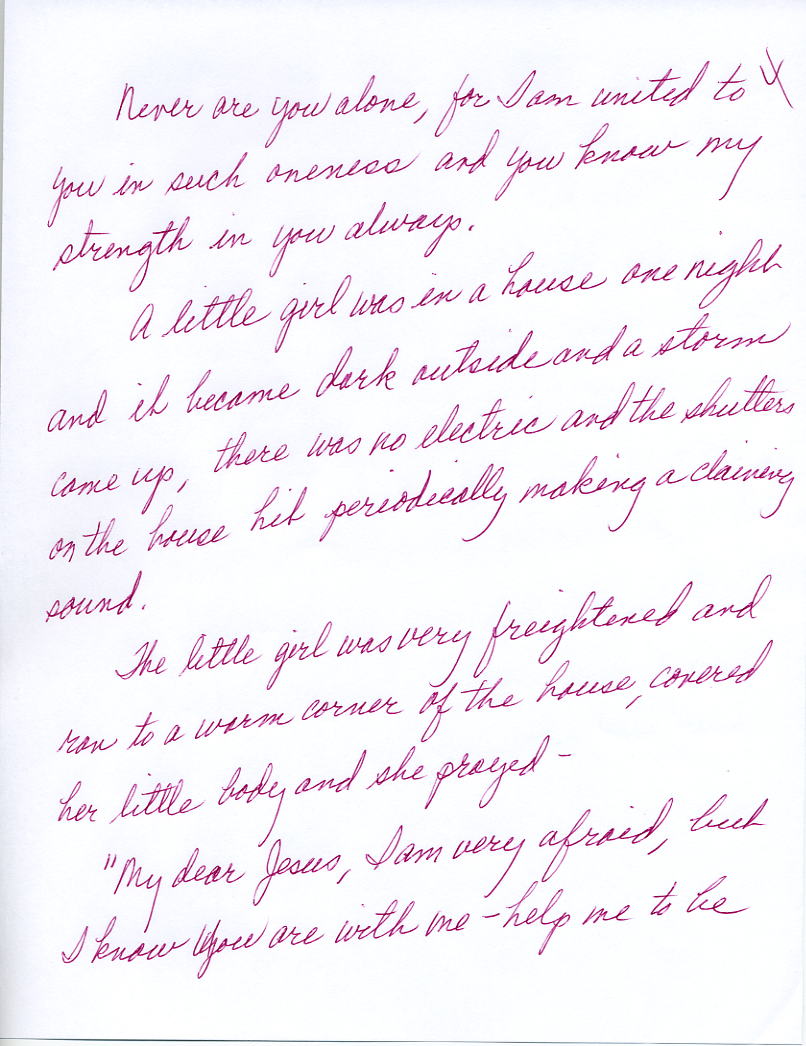 Never are you alone, for I am united to
you in such oneness and you know my
strength in you always.
A little girl was in a house one night
and it became dark outside and a storm
came up, there was no electric and the shutters
on the house hit periodically making a
sound.
The little girl was very freightened and
ran to a warm corner of the house, covered
her little body and she prayed -
"My dear Jesus, I am very afraid, but
I know You are with me - help me to be